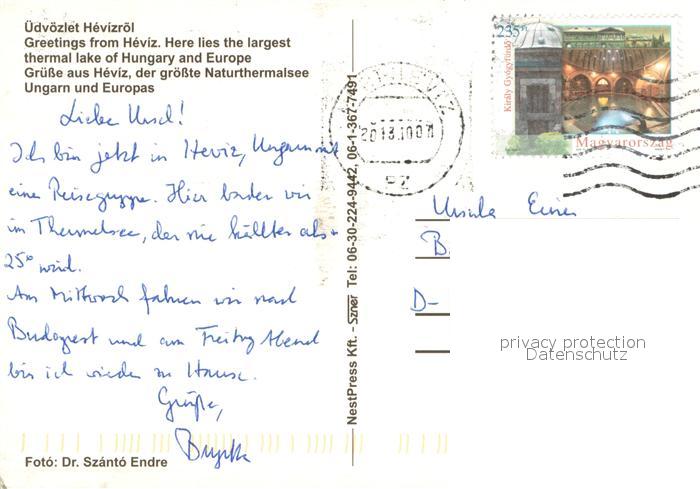 Üdvözlet Hévízről
Greetings from Héviz. Here lies the largest
thermal lake of Hungary and Europe
Grüße aus Héviz, der größte Naturthermalsee
Ungarn und Europas
Liebe Ursel!
Ich bin jetzt in Heviz, Ungarn mit
einer Reisegruppe. Hier baden wir
im Thermalsee, der nie kälter als
25° wird.
Am Mittwoch fahren wir nach
Budapest und am Freitag Abend
bin ich wieder zu Hause.
Grüße,
Fotó: Dr. Szántó Endre
NestPress Kft. - Szner Tel: 06-30-224-9442, 06-1-367-7491
HÉVÍZ
235
Király Gyógyfürdő
Magyarország
Ursula
B
D-
privacy protection
Datenschutz